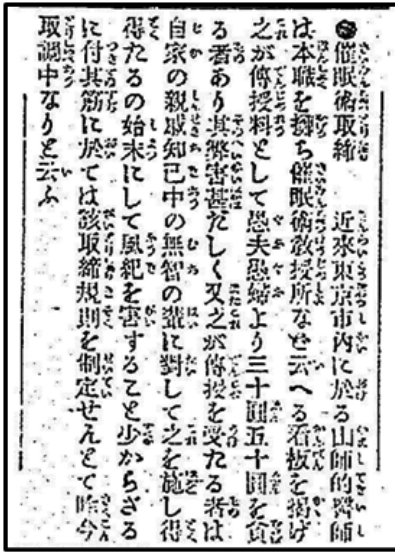 ●催眠術取締　近來東京市内に於る山師的醫師
は本職を擲ち催眠術敎授所など云へる看板を揭げ
之が傳授料として愚夫愚婦より三十圓五十圓を貪
る者あり其弊害甚だしく又之が傳授を受たる者は
自家の親戚知己中の無智の輩に對して之を施し得
得たるの始末にして風紀を害すること少からざる
に付其筋に於ては該取締規則を制定せんとて昨今
取調中なりと云ふ